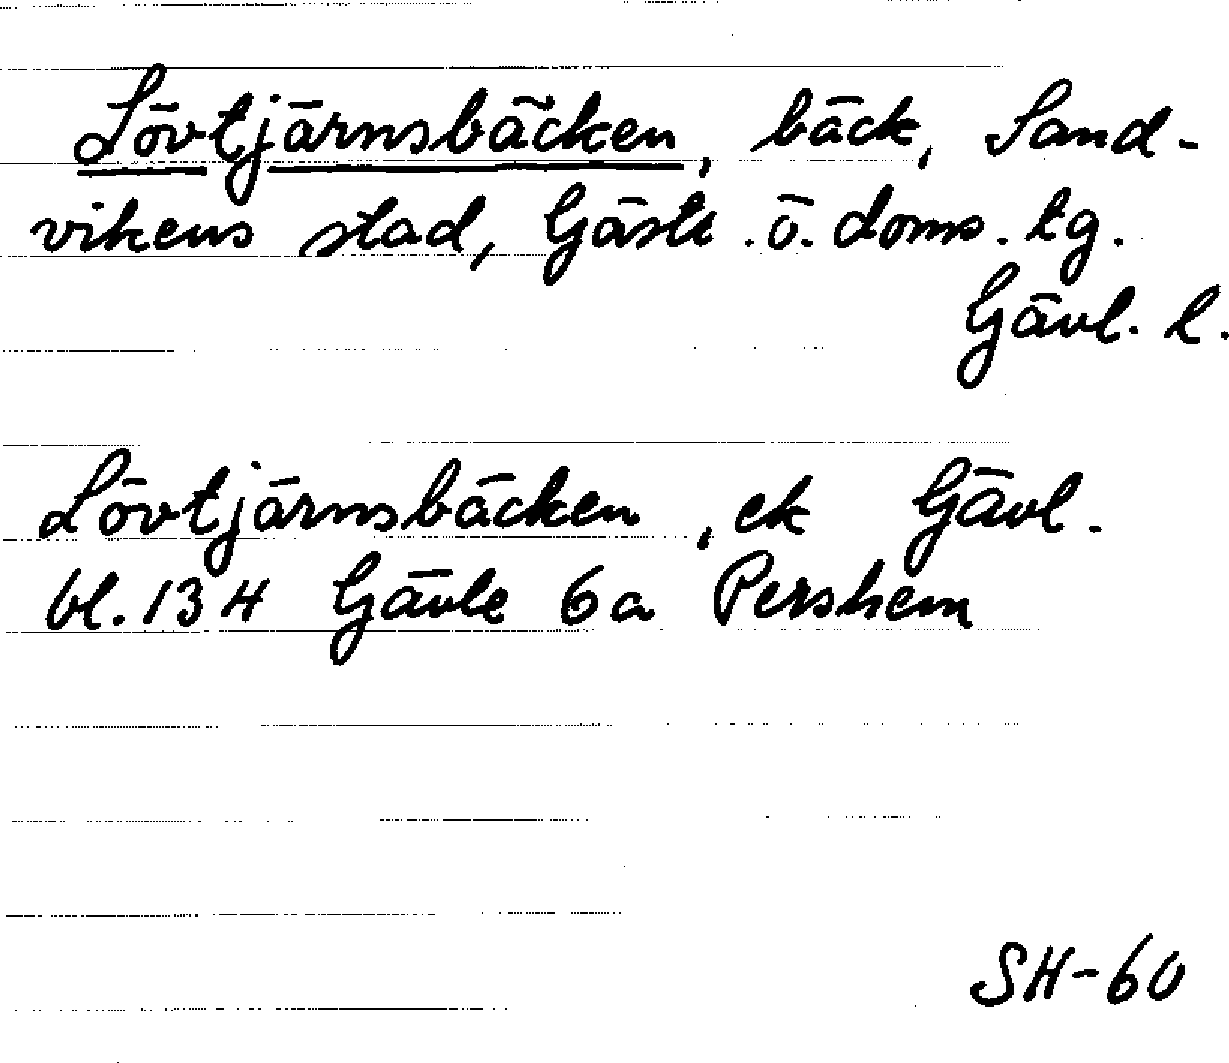 Lövtjärnsbäcken, bäck, Sand-
vikens stad, Gästr. ö. doms. tg.
Gävl. l.
Lövtjärnsbäcken, ek Gävl.
bl. 134 Gävle 6a Pershem
SH-60